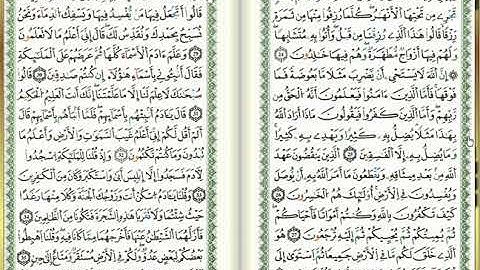 تَجْرِى مِن تَحْتِهَا ٱلْأَنْهَٰرُ كُلَّمَا رُزِقُوا۟ مِنْهَا مِن ثَمَرَةٍ
رِّزْقًا قَالُوا۟ هَٰذَا ٱلَّذِى رُزِقْنَا مِن قَبْلُ وَأُتُوا۟ بِهِۦ مُتَشَٰبِهًا
وَلَهُمْ فِيهَآ أَزْوَٰجٌ مُّطَهَّرَةٌ وَهُمْ فِيهَا خَٰلِدُونَ ٢٥
إِنَّ ٱللَّهَ لَا يَسْتَحْىِۦٓ أَن يَضْرِبَ مَثَلًا مَّا بَعُوضَةً فَمَا
فَوْقَهَا فَأَمَّا ٱلَّذِينَ ءَامَنُوا۟ فَيَعْلَمُونَ أَنَّهُ ٱلْحَقُّ مِن
رَّبِّهِمْ وَأَمَّا ٱلَّذِينَ كَفَرُوا۟ فَيَقُولُونَ مَاذَآ أَرَادَ ٱللَّهُ
بِهَٰذَا مَثَلًا يُضِلُّ بِهِۦ كَثِيرًا وَيَهْدِى بِهِۦ كَثِيرًا
وَمَا يُضِلُّ بِهِۦٓ إِلَّا ٱلْفَٰسِقِينَ ٢٦ ٱلَّذِينَ يَنقُضُونَ عَهْدَ
ٱللَّهِ مِنۢ بَعْدِ مِيثَٰقِهِۦ وَيَقْطَعُونَ مَآ أَمَرَ ٱللَّهُ بِهِۦٓ أَن يُوصَلَ
وَيُفْسِدُونَ فِى ٱلْأَرْضِ أُو۟لَٰٓئِكَ هُمُ ٱلْخَٰسِرُونَ ٢٧
كَيْفَ تَكْفُرُونَ بِٱللَّهِ وَكُنتُمْ أَمْوَٰتًا فَأَحْيَٰكُمْ
ثُمَّ يُمِيتُكُمْ ثُمَّ يُحْيِيكُمْ ثُمَّ إِلَيْهِ تُرْجَعُونَ ٢٨
هُوَ ٱلَّذِى خَلَقَ لَكُم مَّا فِى ٱلْأَرْضِ جَمِيعًا ثُمَّ ٱسْتَوَىٰٓ إِلَى
قَالُوٓا۟ أَتَجْعَلُ فِيهَا مَن يُفْسِدُ فِيهَا وَيَسْفِكُ ٱلدِّمَآءَ وَنَحْنُ
نُسَبِّحُ بِحَمْدِكَ وَنُقَدِّسُ لَكَ قَالَ إِنِّىٓ أَعْلَمُ مَا لَا تَعْلَمُونَ ٣٠
وَعَلَّمَ ءَادَمَ ٱلْأَسْمَآءَ كُلَّهَا ثُمَّ عَرَضَهُمْ عَلَى ٱلْمَلَٰٓئِكَةِ
فَقَالَ أَنۢبِـُٔونِى بِأَسْمَآءِ هَٰٓؤُلَآءِ إِن كُنتُمْ صَٰدِقِينَ ٣١ قَالُوا۟
سُبْحَٰنَكَ لَا عِلْمَ لَنَآ إِلَّا مَا عَلَّمْتَنَآ إِنَّكَ أَنتَ ٱلْعَلِيمُ ٱلْحَكِيمُ
٣٢ قَالَ يَٰٓـَٔادَمُ أَنۢبِئْهُم بِأَسْمَآئِهِمْ فَلَمَّآ أَنۢبَأَهُم بِأَسْمَآئِهِمْ قَالَ
أَلَمْ أَقُل لَّكُمْ إِنِّىٓ أَعْلَمُ غَيْبَ ٱلسَّمَٰوَٰتِ وَٱلْأَرْضِ وَأَعْلَمُ مَا
تُبْدُونَ وَمَا كُنتُمْ تَكْتُمُونَ ٣٣ وَإِذْ قُلْنَا لِلْمَلَٰٓئِكَةِ ٱسْجُدُوا۟
لِـَٔادَمَ فَسَجَدُوٓا۟ إِلَّآ إِبْلِيسَ أَبَىٰ وَٱسْتَكْبَرَ وَكَانَ مِنَ ٱلْكَٰفِرِينَ
٣٤ وَقُلْنَا يَٰٓـَٔادَمُ ٱسْكُنْ أَنتَ وَزَوْجُكَ ٱلْجَنَّةَ وَكُلَا مِنْهَا رَغَدًا
حَيْثُ شِئْتُمَا وَلَا تَقْرَبَا هَٰذِهِ ٱلشَّجَرَةَ فَتَكُونَا مِنَ ٱلظَّٰلِمِينَ ٣٥
فَأَزَلَّهُمَا ٱلشَّيْطَٰنُ عَنْهَا فَأَخْرَجَهُمَا مِمَّا كَانَا فِيهِ وَقُلْنَا ٱهْبِطُوا۟
بَعْضُكُمْ لِبَعْضٍ عَدُوٌّ وَلَكُمْ فِى ٱلْأَرْضِ مُسْتَقَرٌّ وَمَتَٰعٌ إِلَىٰ حِينٍ